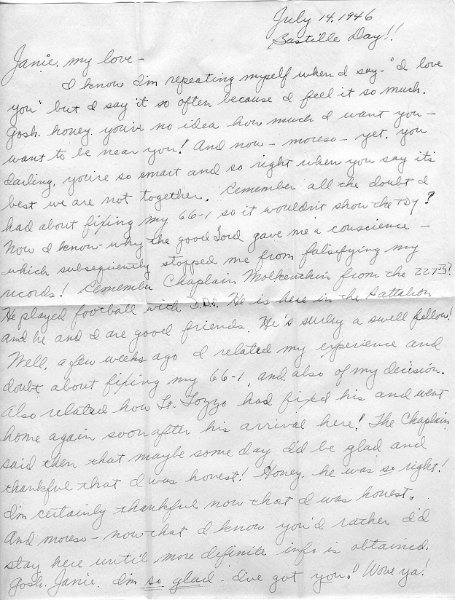 July 14, 1946
Bastille Day!!
Janie, my love -
I know I'm repeating myself when I say - "I love
you" but I say it so often because I feel it so much.
Gosh, honey, you've no idea how much I want you -
want to be near you! And now - moreso - yet, you
darling, you're so smart and so right when you say it's
best we are not together. Remember all the doubt I
had about fixing my 66-1 so it wouldn't show the
Now I know why the good Lord gave me a conscience -
which subsequently stopped me from falsifying my
records! Remember Chaplain from the
He played football with He is here in the Battalion
and he and I are good friends. He's surely a swell fellow!
Well, a few weeks ago I related my experience and
doubt about fixing my 66-1, and also of my decision.
Also related how Lt. Tozzo had fixed his and went
home again soon after his arrival here! The Chaplain
said then that maybe some day I'd be glad and
thankful that I was honest! Honey, he was so right!
I'm certainly thankful now that I was honest.
And moreso - now that I know you'd rather I'd
stay here until more definite info is obtained.
Gosh, Janie, I'm so glad I've got you!! Wove ya!